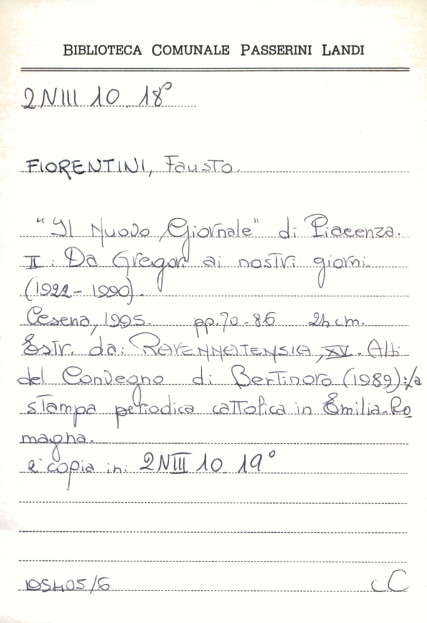 BIBLIOTECA COMUNALE PASSERINI LANDI
2NIII 10 18°
FIORENTINI, Fausto.
"Il Nuovo Giornale" di Piacenza.
II: Da Gregori ai nostri giorni
(1922-1990).
Cesena, 1995. pp.70-86 24cm.
Estr. da: RAVENNATENSIA, XV. Atti
del Convegno di Bertinoro (1989): la
stampa periodica cattolica in Emilia-Ro
magna.
2ª copia in: 2NIII 10 19°
105405/6